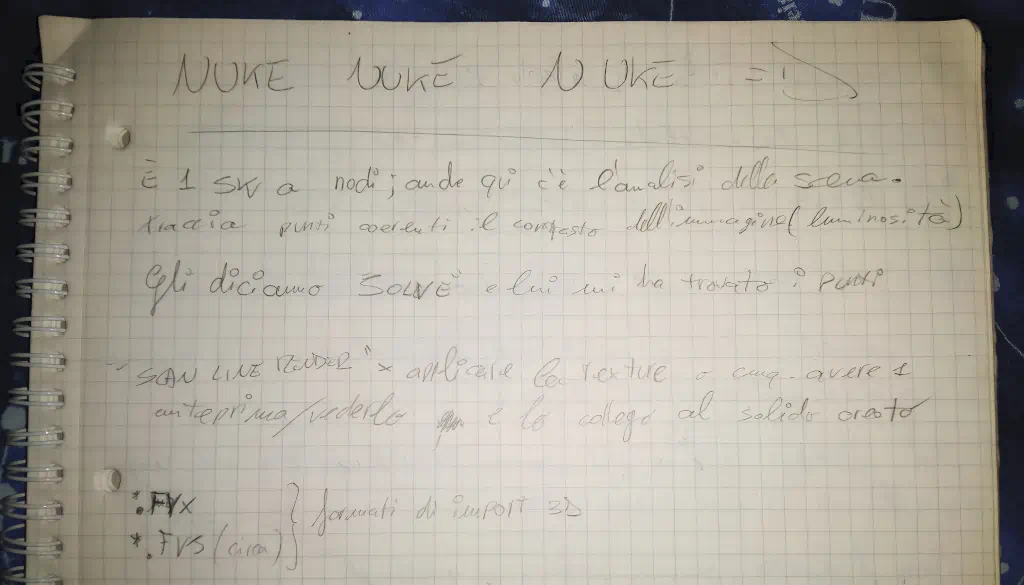 NUKE NUKE NUKE =)
È 1 SW a nodi; anche qui c'è l'analisi della scena.
traccia punti coerenti il contrasto dell'immagine (luminosità)
Gli diciamo "SOLVE" e lui mi ha trovato i punti
"SCAN LINE RENDER" x applicare la texture o cmq. avere 1
anteprima/vederlo e lo collego al solido creato
*.
*. (circa) } formati di import 3D